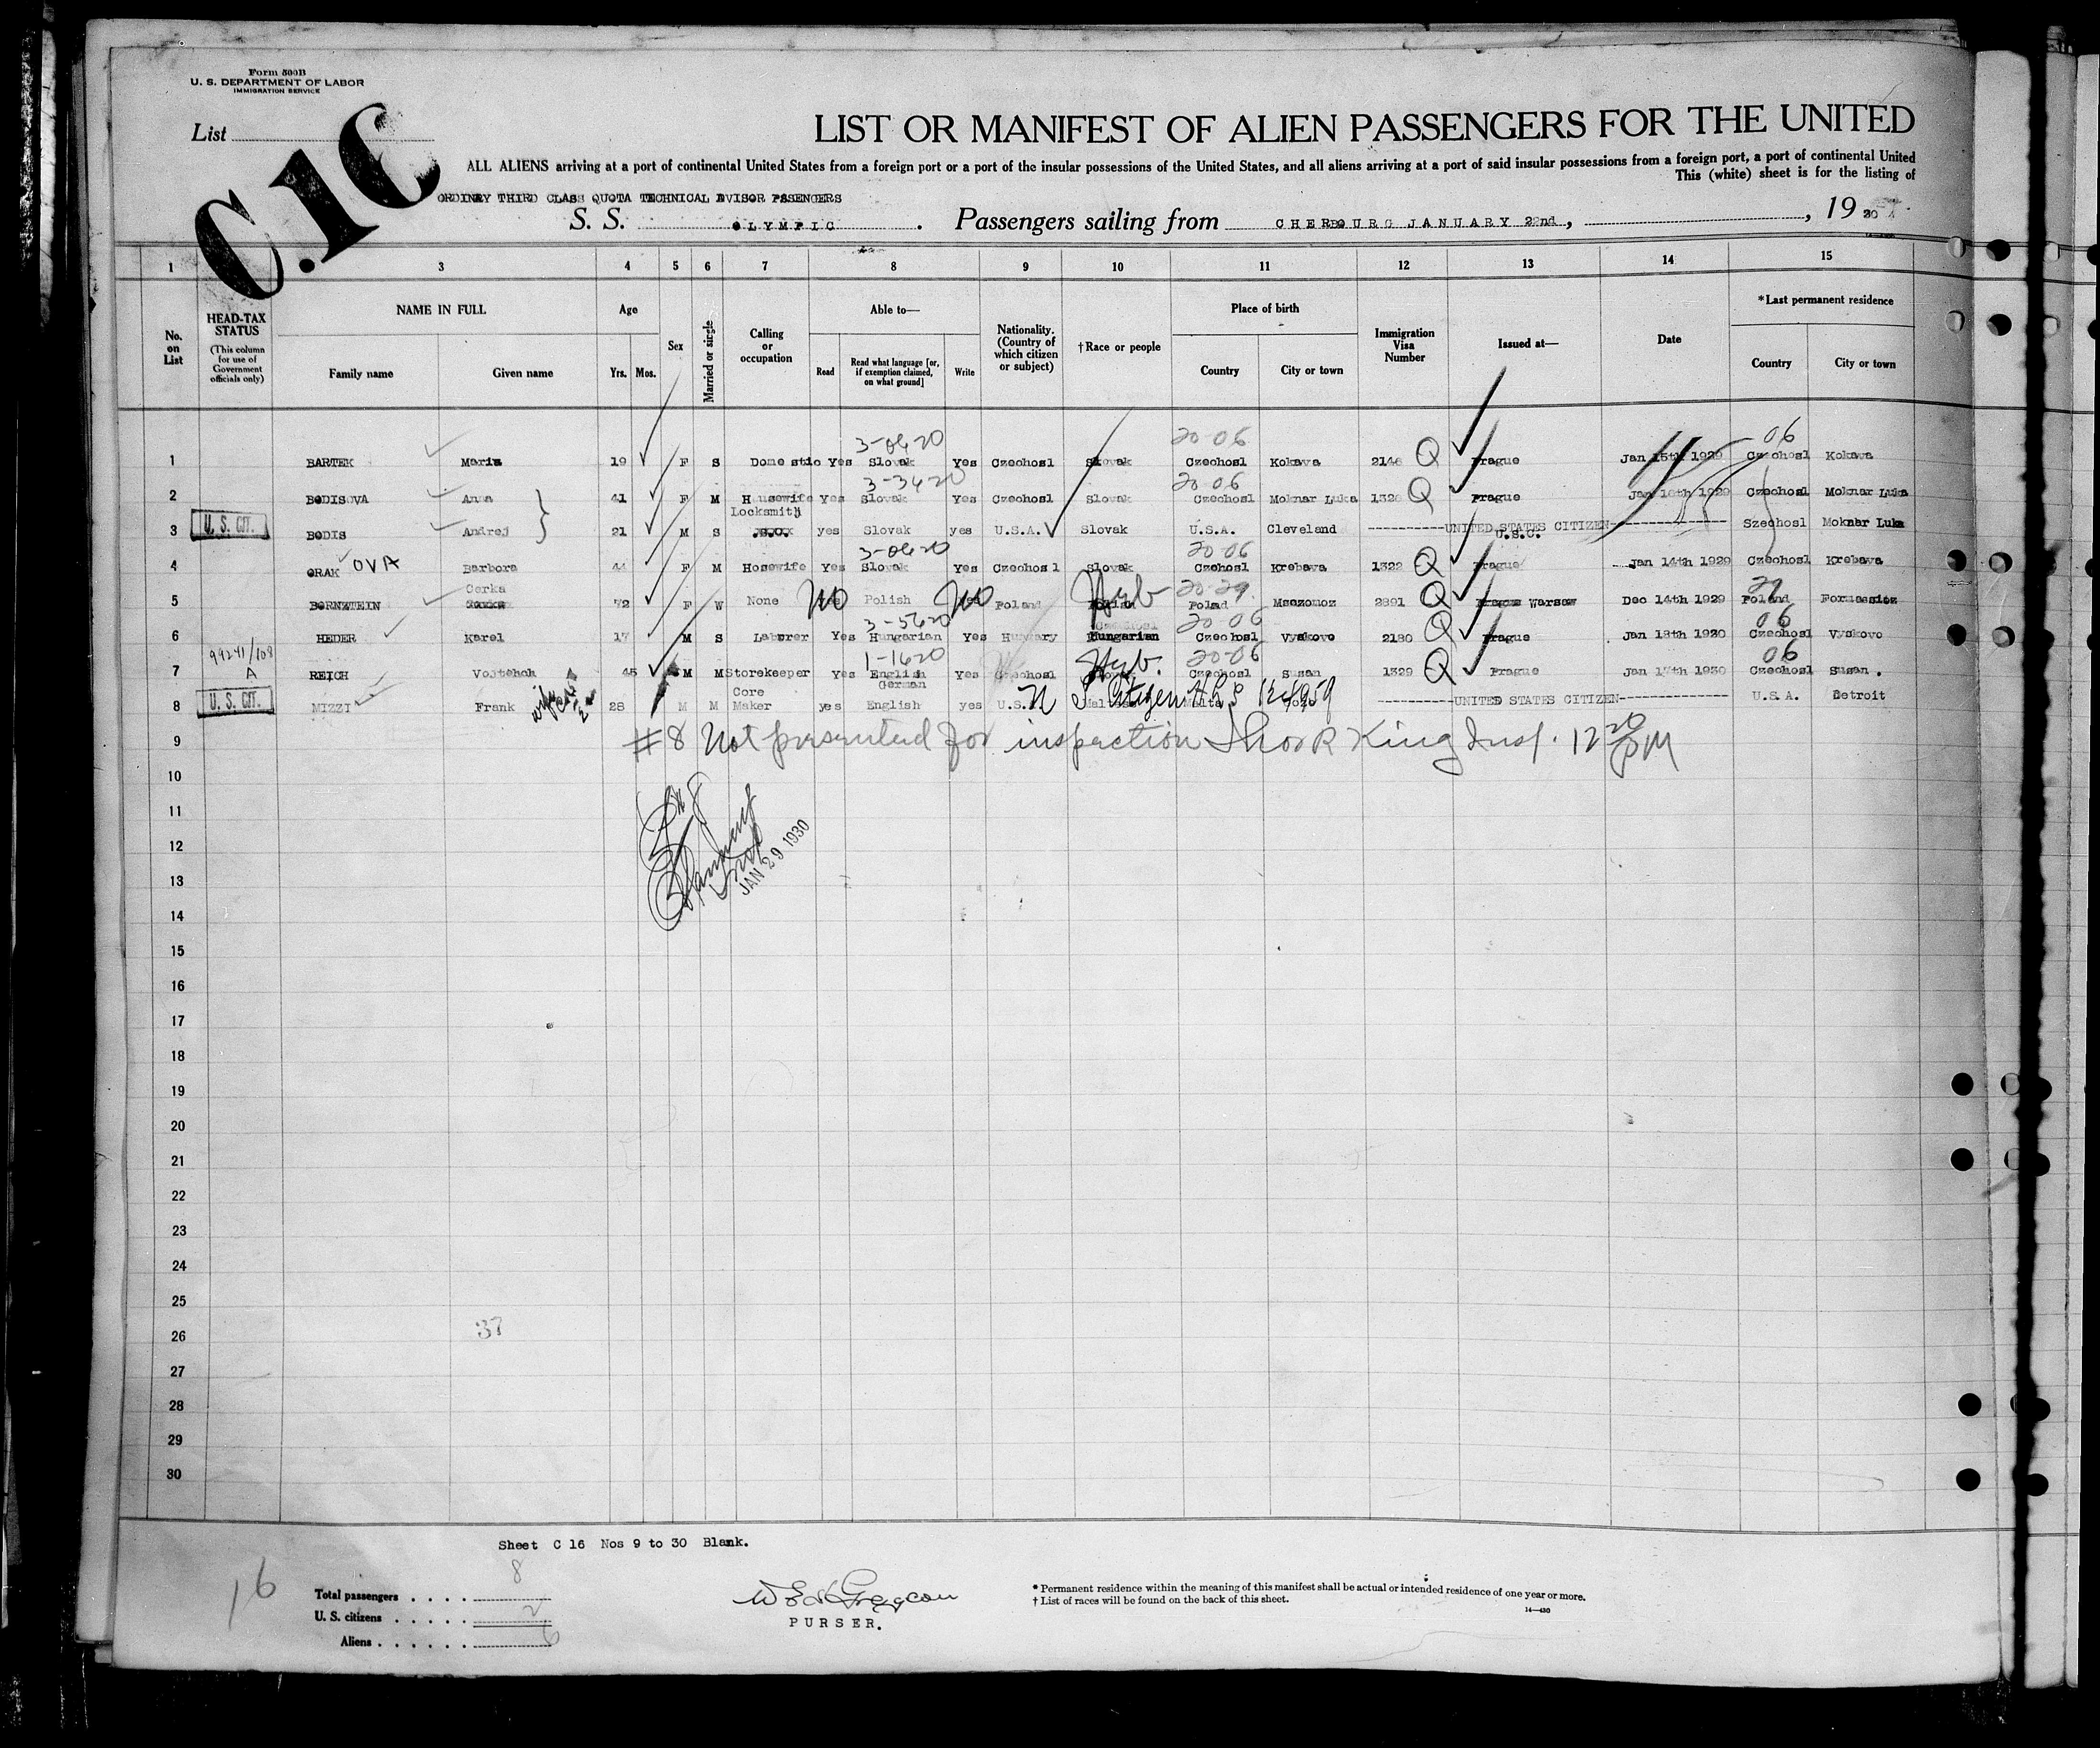 Form 500B
U. S. DEPARTMENT OF LABOR
IMMIGRATION SERVICE
List
C.16
LIST OR MANIFEST OF ALIEN PASSENGERS FOR THE UNITED
ALL ALIENS arriving at a port of continental United States from a foreign port or a port of the insular possessions of the United States, and all aliens arriving at a port of said insular possessions from a foreign port, a port of continental United
This (white) sheet is for the listing of
ORDINRY THIRD CLASS QUOTA TECHNICAL DVISOR PSSENGERS
S. S. OLYMPIC. Passengers sailing from CHERBOURG JANUARY 22nd, , 19 30
1 3 4 5 6 7 8 9 10 11 12 13 14 15
No. on List
HEAD-TAX STATUS (This column for use of Government officials only)
NAME IN FULL Family name Given name
Age Yrs. Mos.
Sex
Married or single
Calling or occupation
Able to— Read Read what language [or, if exemption claimed, on what ground] Write
Nationality. (Country of which citizen or subject)
†Race or people
Place of birth Country City or town
Immigration Visa Number
Issued at—
Date
*Last permanent residence Country City or town
3-0620 20-06 06
1 BARTEK Maria 19 F S Domestic Yes Slovak Yes Czechosl Slovak Czechosl Kokava 2146 Q Prague Jan 15th 1929 Czechosl Kokava
3-3420 20 06
2 BODISOVA Anna 41 F M Housewife Yes Slovak Yes Czechosl Slovak Czechosl Moknar Luka 1320 Q Prague Jan 1929 Czechosl Moknar Luka
Locksmith
U. S. CIT. 3 BODIS Andrej 21 M S yes Slovak yes U.S.A. Slovak U.S.A. Cleveland UNITED STATES CITIZEN Szechosl Moknar Luka
U.S.C.
3-0620 20 06
4 ORAK OVA Barbora 44 F M Hosewife Yes Slovak Yes Czechosl Slovak Czchosl Krebava 1322 Q Prague Jan 14th 1929 Czechosl Krebava
Cerka 20-29. 29
5 BORNZTEIN 72 F W None No Polish No Poland Heb Polnd Msczonoz 2891 Q Prague Warsaw Dec 14th 1929 Poland
3-5620 20 06 06
6 HEDER Karel 17 M S Laburer Yes Hungarian Yes Hungary Hungarian Czechosl Vyskovo 2180 Q Prague Jan 18th 1930 Czechosl Vyskovo
99241/108 1-1620 20-06 06
A
7 REICH Vojtehch 45 M M Storekeeper Yes English Yes Czechosl Heb. Czechosl Susan 1329 Q Prague Jan 17th 1930 Czechosl Susan.
German
Core
U. S. CIT. 8 MIZZI Frank 28 M M Maker yes English yes U.S. Citizen Malta UNITED STATES CITIZEN U.S.A. Detroit
wife
9 #8 Not presented for inspection King Insp. 12 20 PM
10
11
12
JAN 29 1930
13
14
15
16
17
18
19
20
21
22
23
24
25
26 37
27
28
29
30
Sheet C 16 Nos 9 to 30 Blank.
16
Total passengers . . . . 8
U. S. citizens . . . . . 2
Aliens . . . . . . 6
PURSER.
* Permanent residence within the meaning of this manifest shall be actual or intended residence of one year or more.
† List of races will be found on the back of this sheet.
14—430